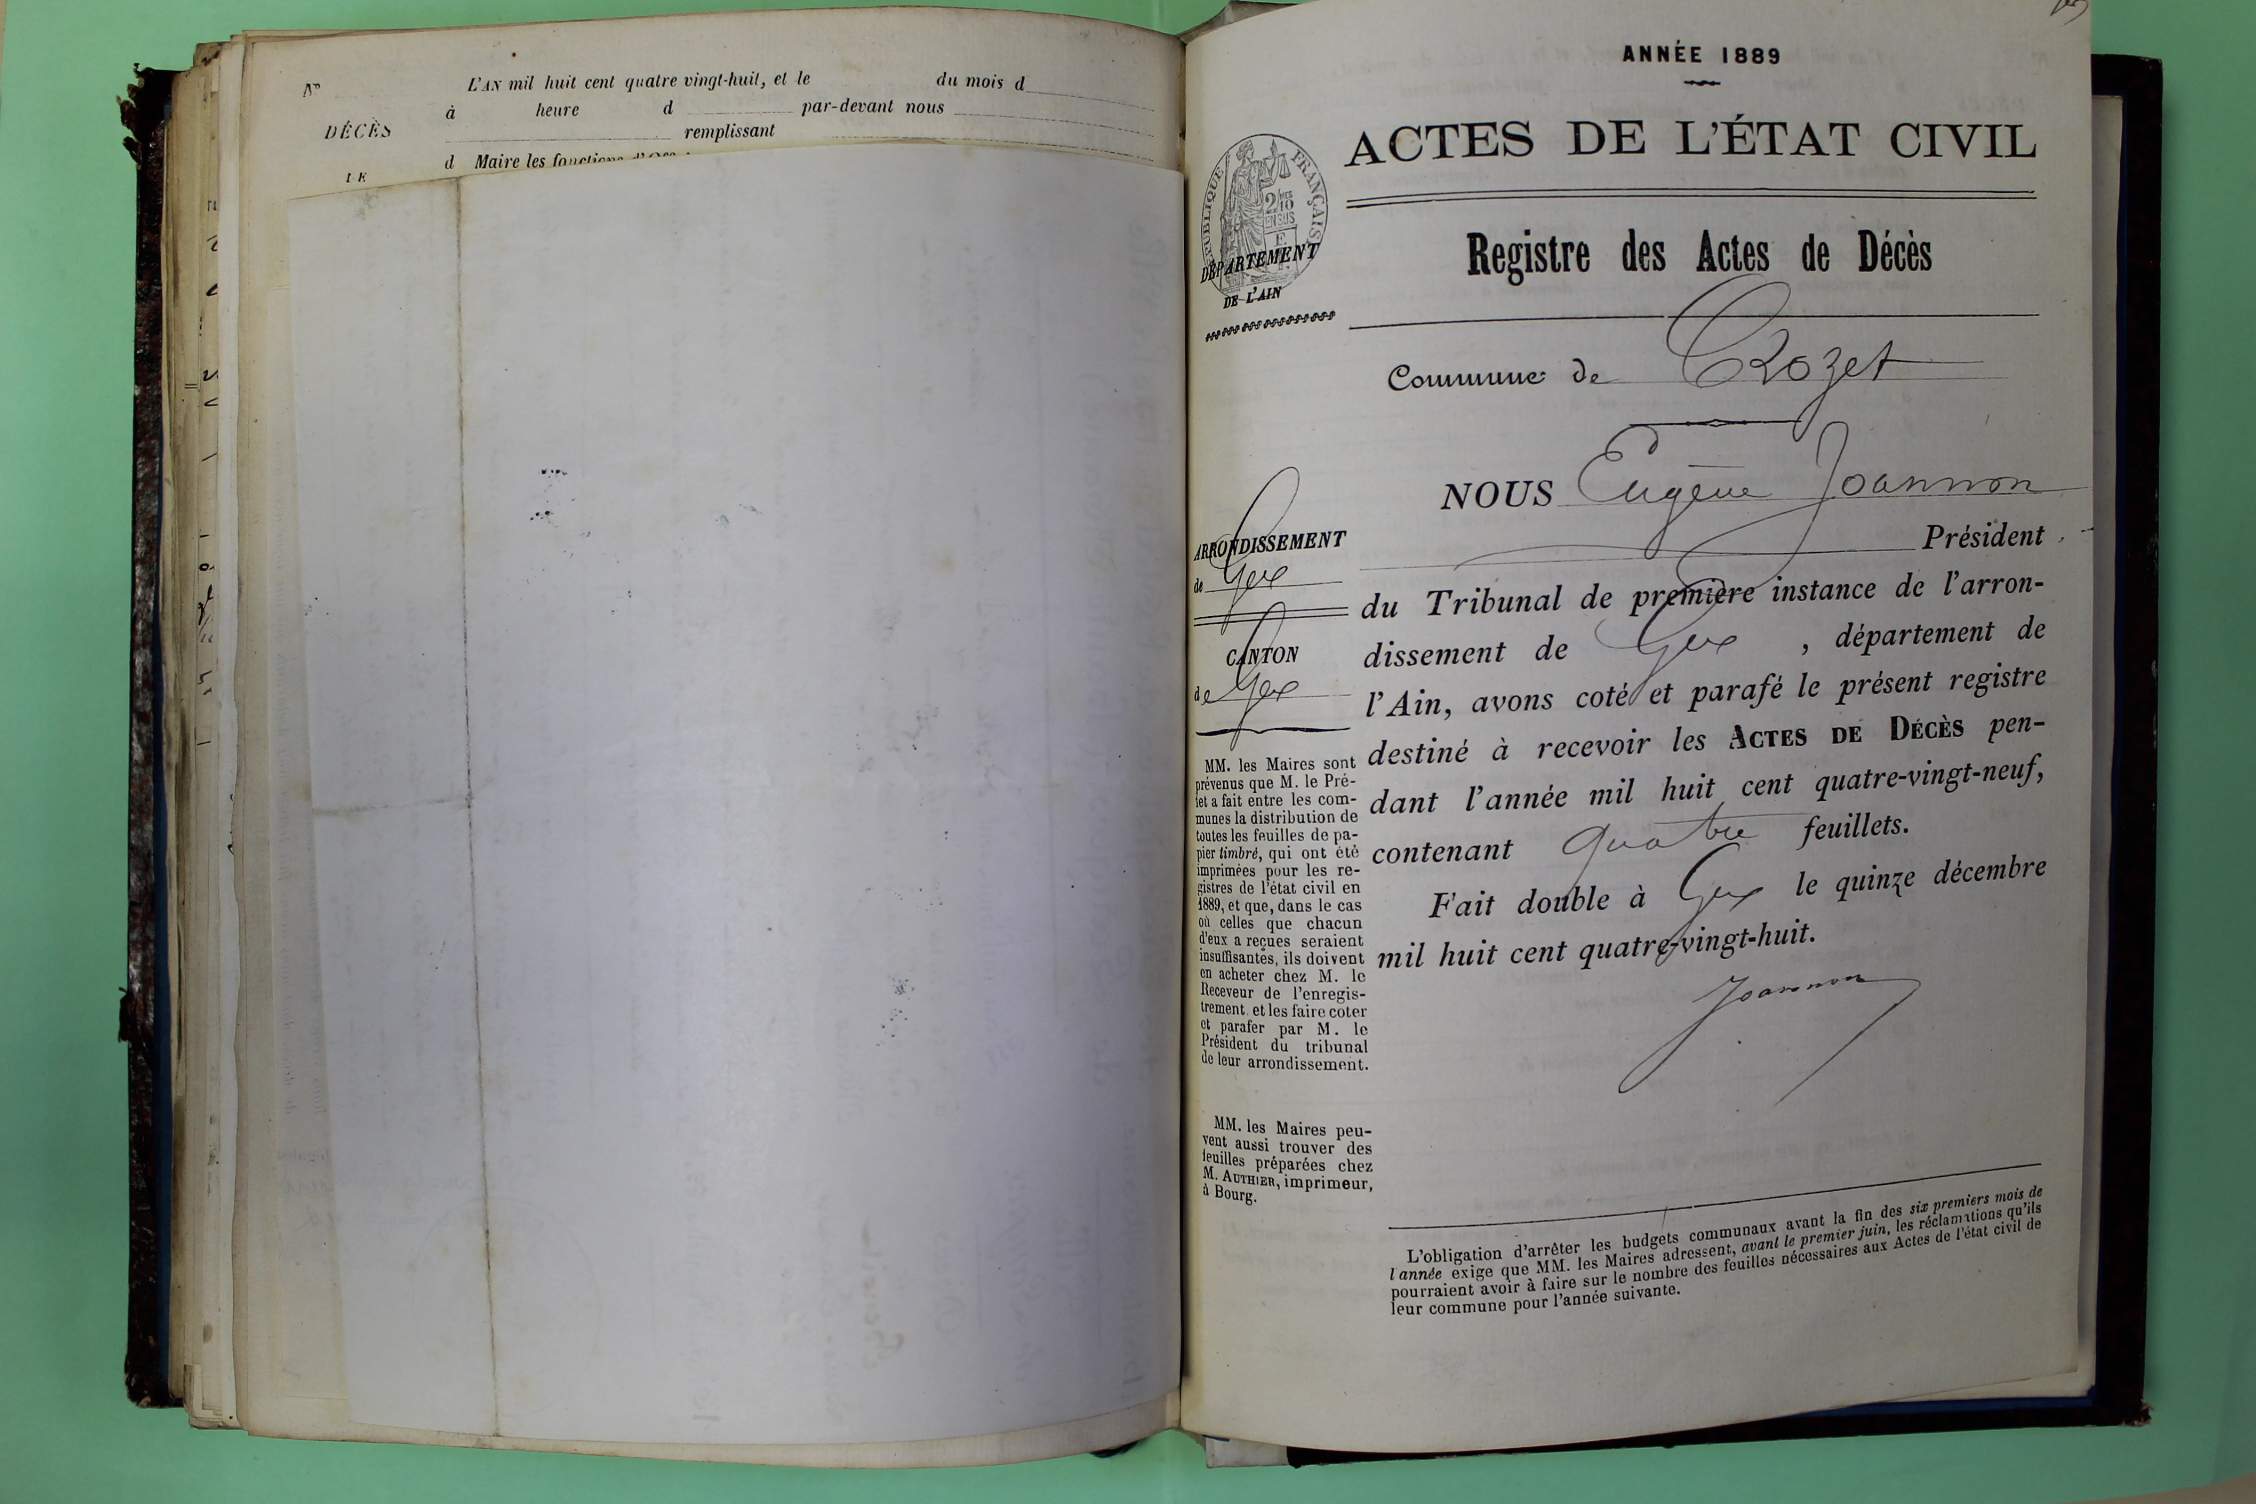 N°
L'AN mil huit cent quatre vingt-huit, et le du mois d
à heure d par-devant nous
DÉCÈS
remplissant
d Maire les fonctions
LE
ANNÉE 1889
ACTES DE L'ÉTAT CIVIL
RÉPUBLIQUE FRANÇAISE
2/10 EN SUS
DÉPARTEMENT
DE L'AIN
Registre des Actes de Décès
Commune de Crozet
NOUS Eugène Joannon
Président
du Tribunal de première instance de l'arron-
dissement de Gex , département de
l'Ain, avons coté et parafé le présent registre
destiné à recevoir les ACTES DE DÉCÈS pen-
dant l'année mil huit cent quatre-vingt-neuf,
contenant quatre feuillets.
Fait double à Gex le quinze décembre
mil huit cent quatre-vingt-huit.
Joannon
ARRONDISSEMENT
de Gex
CANTON
de Gex
MM. les Maires sont
prévenus que M. le Pré-
fet a fait entre les com-
munes la distribution de
toutes les feuilles de pa-
pier timbré, qui ont été
imprimées pour les re-
gistres de l'état civil en
1889, et que, dans le cas
où celles que chacun
d'eux a reçues seraient
insuffisantes, ils doivent
en acheter chez M. le
Receveur de l'enregis-
trement et les faire coter
et parafer par M. le
Président du tribunal
de leur arrondissement.
MM. les Maires peu-
vent aussi trouver des
feuilles préparées chez
M. AUTHIER, imprimeur,
à Bourg.
L'obligation d'arrêter les budgets communaux avant la fin des six premiers mois de
l'année exige que MM. les Maires adressent, avant le premier juin, les réclamations qu'ils
pourraient avoir à faire sur le nombre des feuilles nécessaires aux Actes de l'état civil de
leur commune pour l'année suivante.